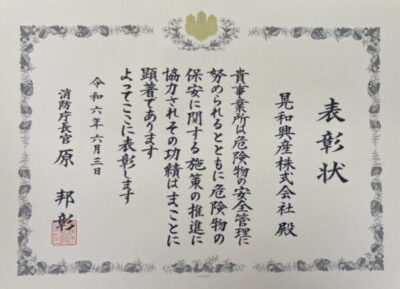 表彰状
晃和興産株式会社 殿
貴事業所は危険物の安全管理に
努められるとともに危険物の
保安に関する施策の推進に
協力されその功績はまことに
顕著であります
よってここに表彰します
令和六年六月三日
消防庁長官 原 邦彰